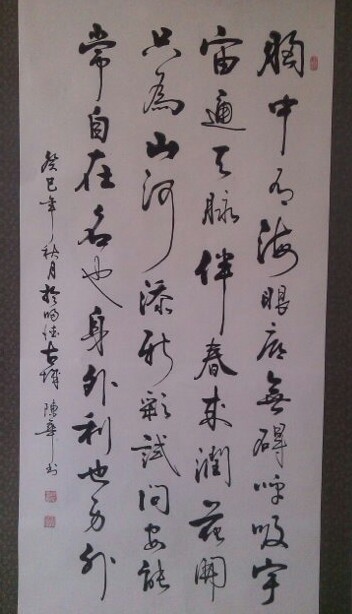 胸中有海眼底無礙呼吸宇
宙通天脉伴春来潤花開
只為山河添新彩試問安能
常自在名也身外利也身外
癸巳年秋月於德古城 陳華书